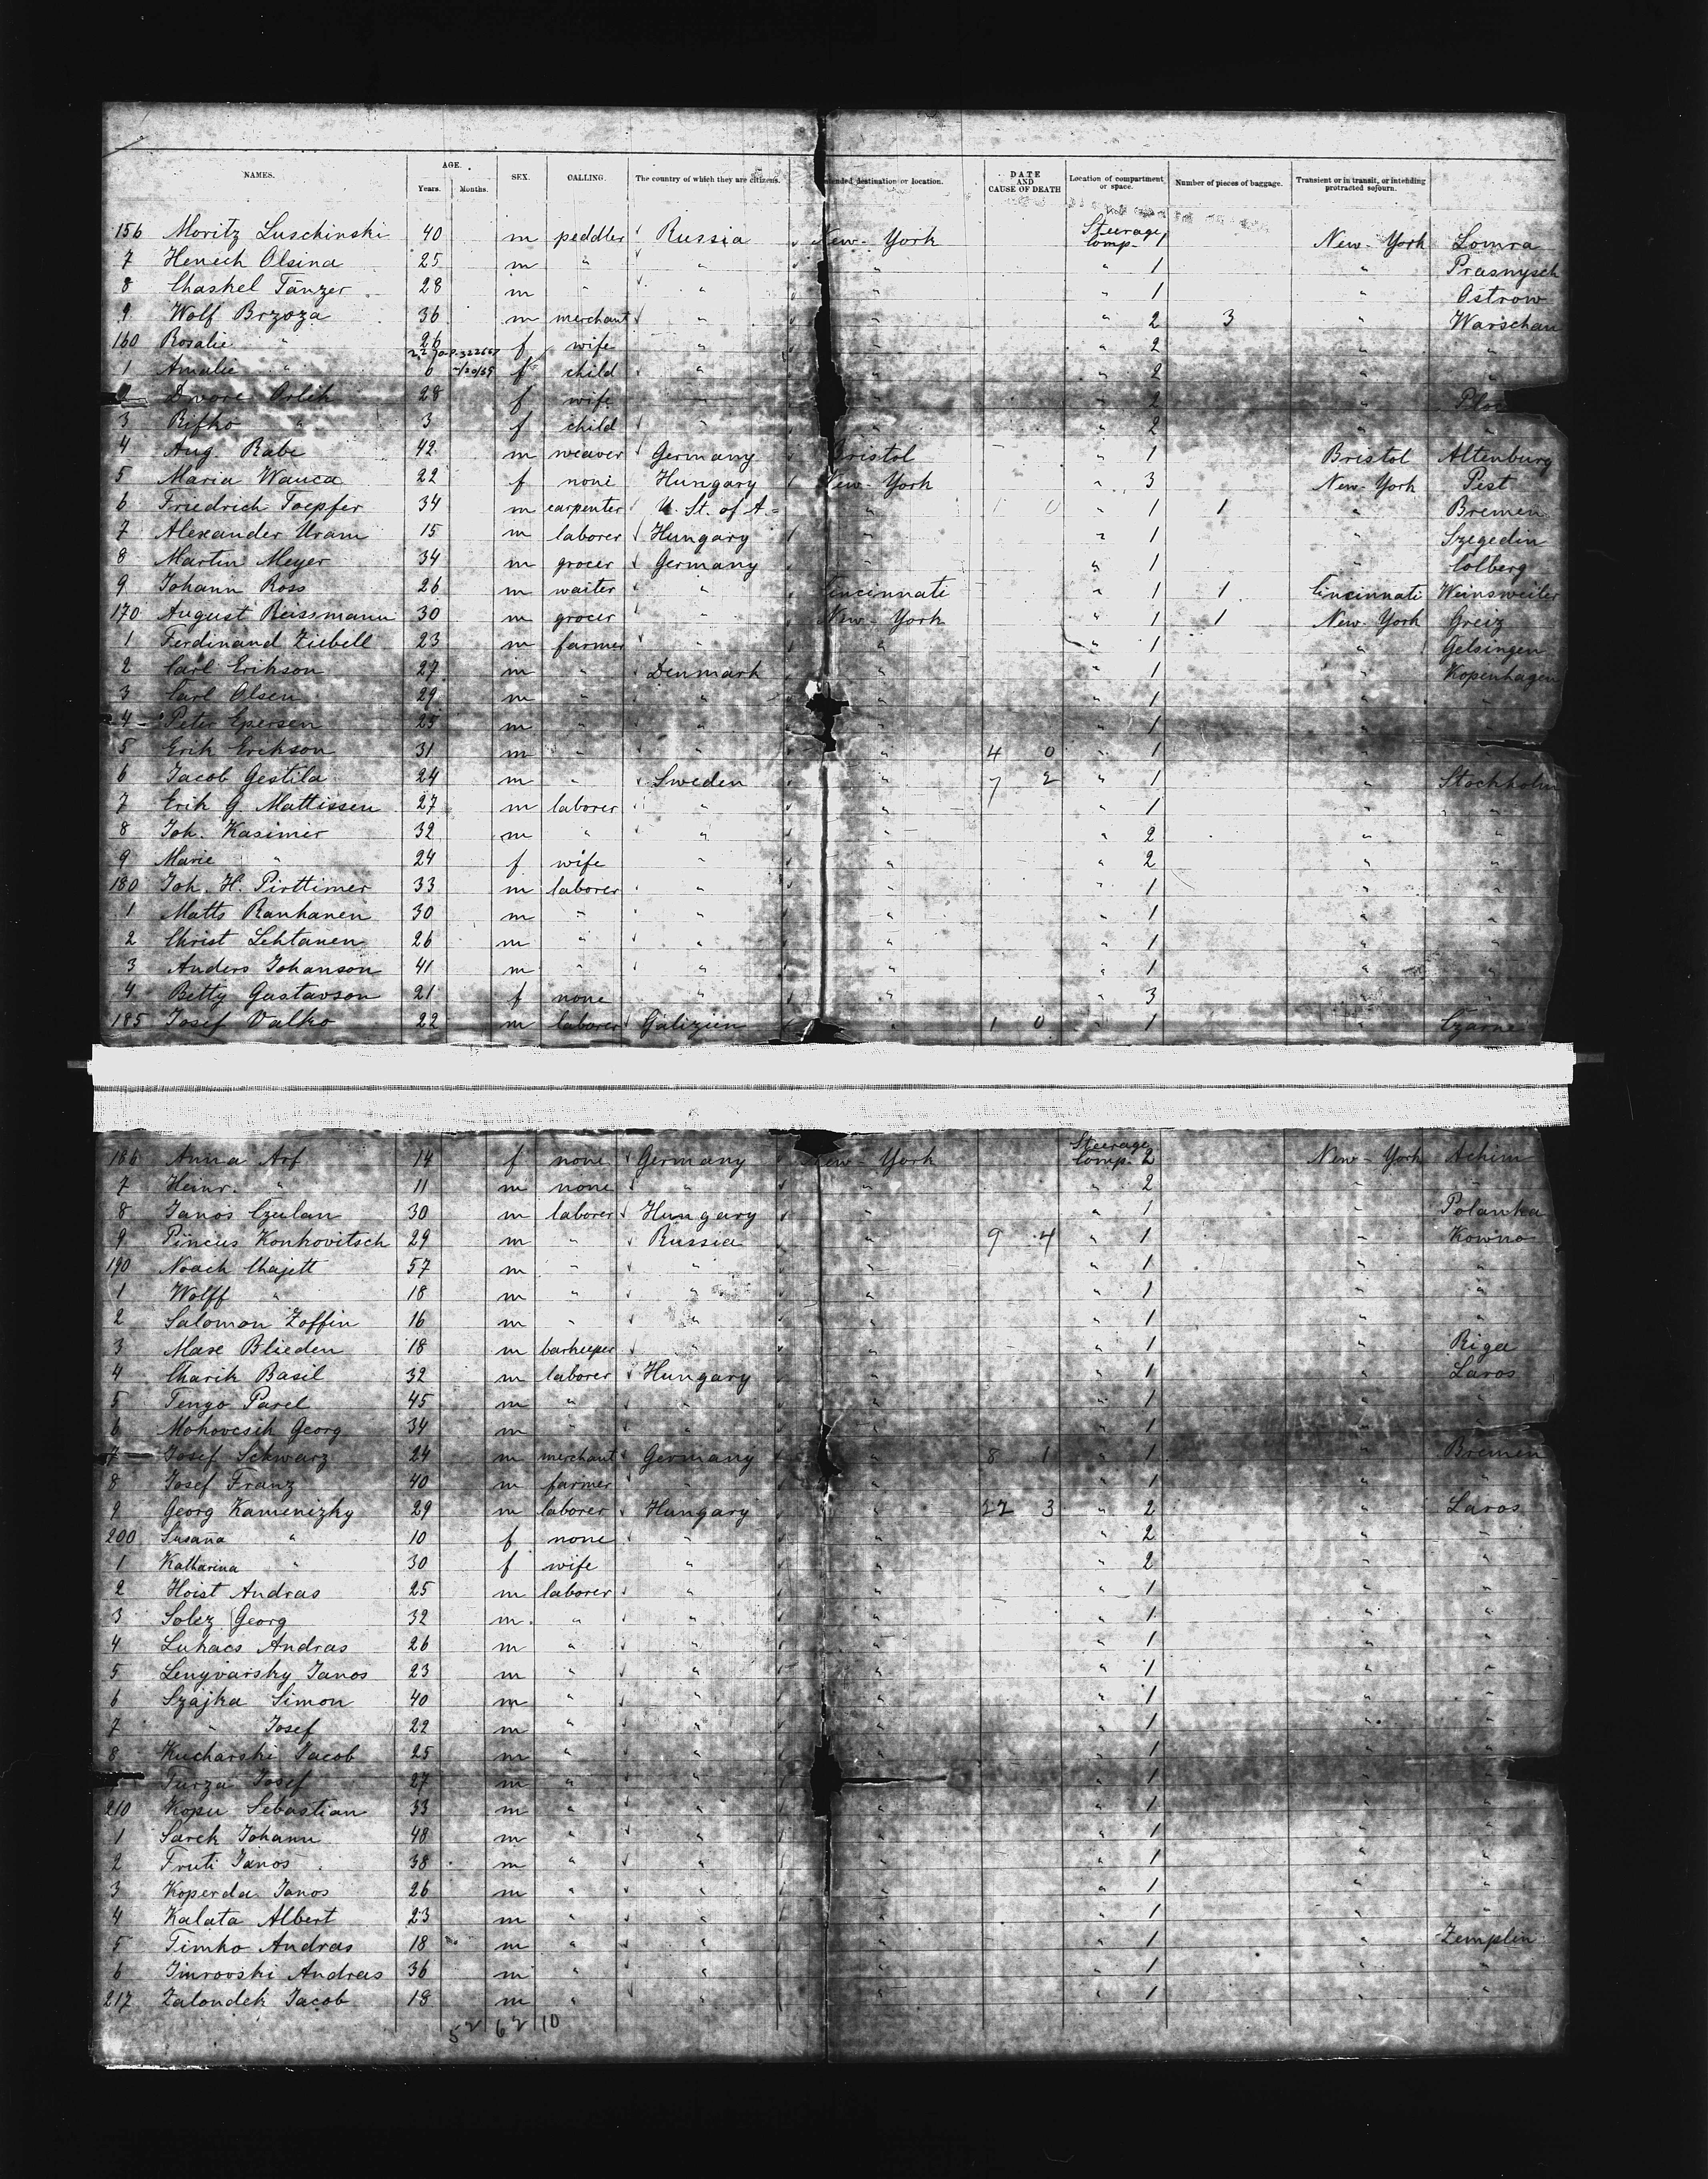 NAMES. AGE. Years. Months. SEX. CALLING. The country of which they are citizens. Intended destination or location. DATE AND CAUSE OF DEATH Location of compartment or space. Number of pieces of baggage. Transient or in transit, or intending protracted sojourn.
156 Moritz Luschinski 40 m peddler Russia New-York Steerage Comp. 1 New-York Lomza
7 Henech Olsina 25 m " " " " 1 " Prasnysch
8 Chaskel Tänzer 28 m " " " " 1 " Ostrow
9 Wolf Brzoza 36 m merchant " " " 2 3 " Warschau
160 Rosalie " 26 f wife " " " 2 " "
1 Amalie " 6 f child " " " 2 " "
2 Dwore Orlik 28 f wife " " " 2 "
3 Rifko " 3 f child " " " 2 " "
4 Aug. Rabe 42 m weaver Germany Bristol " 1 Bristol Altenburg
5 Maria Wauca 22 f none Hungary New-York " 3 New-York Pest
6 Friedrich Toepfer 34 m carpenter U. St. of A. " 1 0 " 1 1 " Bremen
7 Alexander Uram 15 m laborer Hungary " " 1 " Szegedin
8 Martin Meyer 34 m grocer Germany " " 1 " Colberg
9 Johann Ross 26 m waiter " Cincinnati " 1 1 Cincinnati Weinsweiler
170 August Reissmann 30 m grocer " New-York " 1 1 New-York Greiz
1 Ferdinand Ziebell 23 m farmer " " " 1 " Gelsingen
2 Carl Erikson 27 m " Denmark " " 1 " Kopenhagen
3 Carl Olsen 29 m " " " " 1 " "
4 Peter Epersen 25 m " " " " 1 " "
5 Erik Erickson 31 m " " " 4 0 " 1 " "
6 Jacob Gestila 24 m " Sweden " 7 2 " 1 " Stockholm
7 Erik G. Mattissen 27 m laborer " " " 1 " "
8 Joh. Kasimir 32 m " " " " 2 " "
9 Marie " 24 f wife " " " 2 " "
180 Joh. H. Pirttimer 33 m laborer " " " 1 " "
1 Matts Rauhanen 30 m " " " " 1 " "
2 Christ Lehtanen 26 m " " " " 1 " "
3 Anders Johanson 41 m " " " " 1 " "
4 Betty Gustavson 21 f none " " " 3 " "
185 Josef Valko 22 m laborer Galizien " 1 0 " 1 " Czarne
186 Anna Arf 14 f none Germany New-York Steerage Comp. 2 New-York Achim
7 Heinr. " 11 m none " " " 2 " "
8 Janos Czulan 30 m laborer Hungary " " 1 " Polanka
9 Pincus Konkovitsch 29 m " Russia " 9 4 " 1 " Kowno
190 Noach Chajett 57 m " " " " 1 " "
1 Wolff " 18 m " " " " 1 " "
2 Salomon Zoffin 16 m " " " " 1 " "
3 Maxe Blieden 18 m barkeeper " " " 1 " Riga
4 Charik Basil 32 m laborer Hungary " " 1 " Laros
5 Tengo Parel 45 m " " " " 1 " "
6 Mohovcsik Georg 34 m " " " " 1 " "
7 Josef Schwarz 24 m merchant Germany " 8 1 " 1 " Bremen
8 Josef Franz 40 m farmer " " " 1 " "
9 Georg Kamenizky 29 m laborer Hungary " 22 3 " 2 " Laros
200 Susana " 10 f none " " " 2 " "
1 Katharina " 30 f wife " " " 2 " "
2 Hoist Andras 25 m laborer " " " 1 " "
3 Solez Georg 32 m " " " " 1 " "
4 Luhacs Andras 26 m " " " " 1 " "
5 Lenyvarsky Janos 23 m " " " " 1 " "
6 Szajka Simon 40 m " " " " 1 " "
7 " Josef 22 m " " " " 1 " "
8 Kucharski Jacob 25 m " " " " 1 " "
Turza Josef 27 m " " " " 1 "
210 Kopu Sebastian 33 m " " " " 1 " "
1 Sarek Johann 48 m " " " " 1 " "
2 Fruti Janos 38 m " " " " 1 " "
3 Koperda Janos 26 m " " " " 1 " "
4 Kalata Albert 23 m " " " " 1 " "
5 Timko Andras 18 m " " " " 1 " Zemplin
6 Andras 36 m " " " " 1 " "
217 Zalondek Jacob 18 m " " " " 1 " "
52 62 10